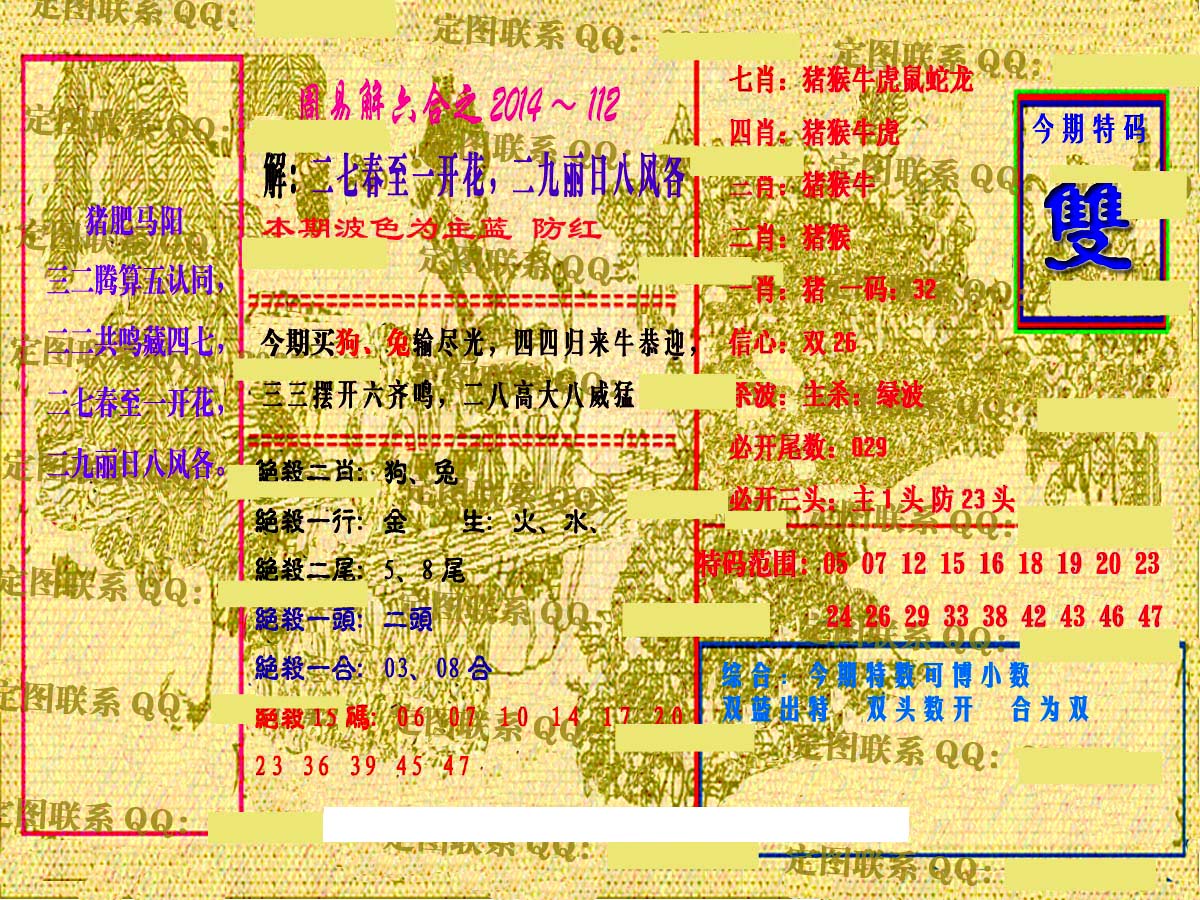 周易解六合之 2014～112
解：二七春至一开花，二九丽日八风各
本期波色为主蓝 防红
猪肥马阳
三二腾算五认同，
二二共鸣藏四七，
二七春至一开花，
二九丽日八风各。
今期买狗、兔输尽光，四四归来牛恭迎，
三三摆开六齐鸣，二八高大八威猛
絕殺二肖：狗、兔
絕殺一行：金 生：火、水、
絕殺二尾：5、8尾
絕殺一頭：二頭
絕殺一合：03、08合
絕殺15碼：06 07 10 14 17 20
23 36 39 45 47
七肖：猪猴牛虎鼠蛇龙
四肖：猪猴牛虎
三肖：猪猴牛
二肖：猪猴
一肖：猪 一码：32
信心：双26
杀波：主杀：绿波
必开尾数：029
必开三头：主1头防23头
今期特码
雙
特码范围：05 07 12 15 16 18 19 20 23
24 26 29 33 38 42 43 46 47
综合：今期特数可博小数
双蓝出特 双头数开 合为双
定图联系 QQ：
定图联系 QQ：
定图联系 QQ：
定图联系 QQ：
定图联系 QQ：
定图联系 QQ：
定图联系 QQ：
定图联系 QQ：